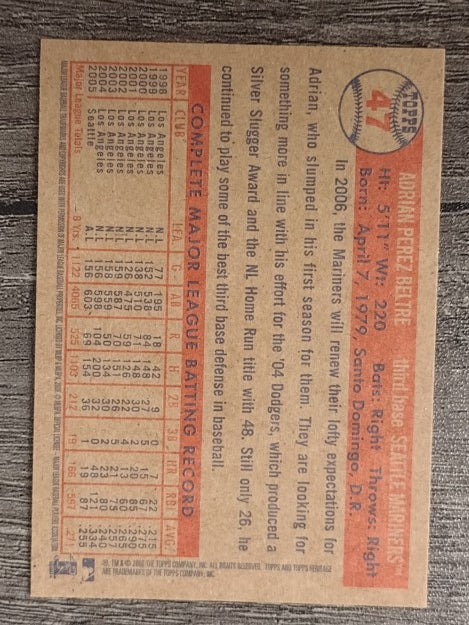 TOPPS
47
ADRIAN PEREZ BELTRE third base SEATTLE MARINERS™
Ht: 5'11" Wt: 220 Bats: Right Throws: Right
Born: April 7, 1979, Santo Domingo, D.R.
In 2006, the Mariners will renew their lofty expectations for
Adrian, who slumped in his first season for them. They are looking for
something more in line with his effort for the '04 Dodgers, which produced a
Silver Slugger Award and the NL Home Run title with 48. Still only 26, he
continued to play some of the best third base defense in baseball.
COMPLETE MAJOR LEAGUE BATTING RECORD
YEAR CLUB LEA. G AB R H 2B 3B HR RBI AVG.
1998 Los Angeles N.L. 77 195 18 42 9 0 7 22 .215
1999 Los Angeles N.L. 152 538 84
2000 Los Angeles N.L. 138
2001 Los Angeles N.L.
2002 Los Angeles N.L. 159 587 70
2003 Los Angeles N.L. 158 559
2004 Los Angeles N.L. 156 598 104 200 32 0 48 121 .334
2005 Seattle A.L. 156 603 69 154 36 1 19 87 .255
Major League Totals 8 Yrs. 1122 4065 525 1103 212 19 166
®, TM & © 2006 THE TOPPS COMPANY, INC. ALL RIGHTS RESERVED. TOPPS AND TOPPS HERITAGE
ARE TRADEMARKS OF THE TOPPS COMPANY, INC.